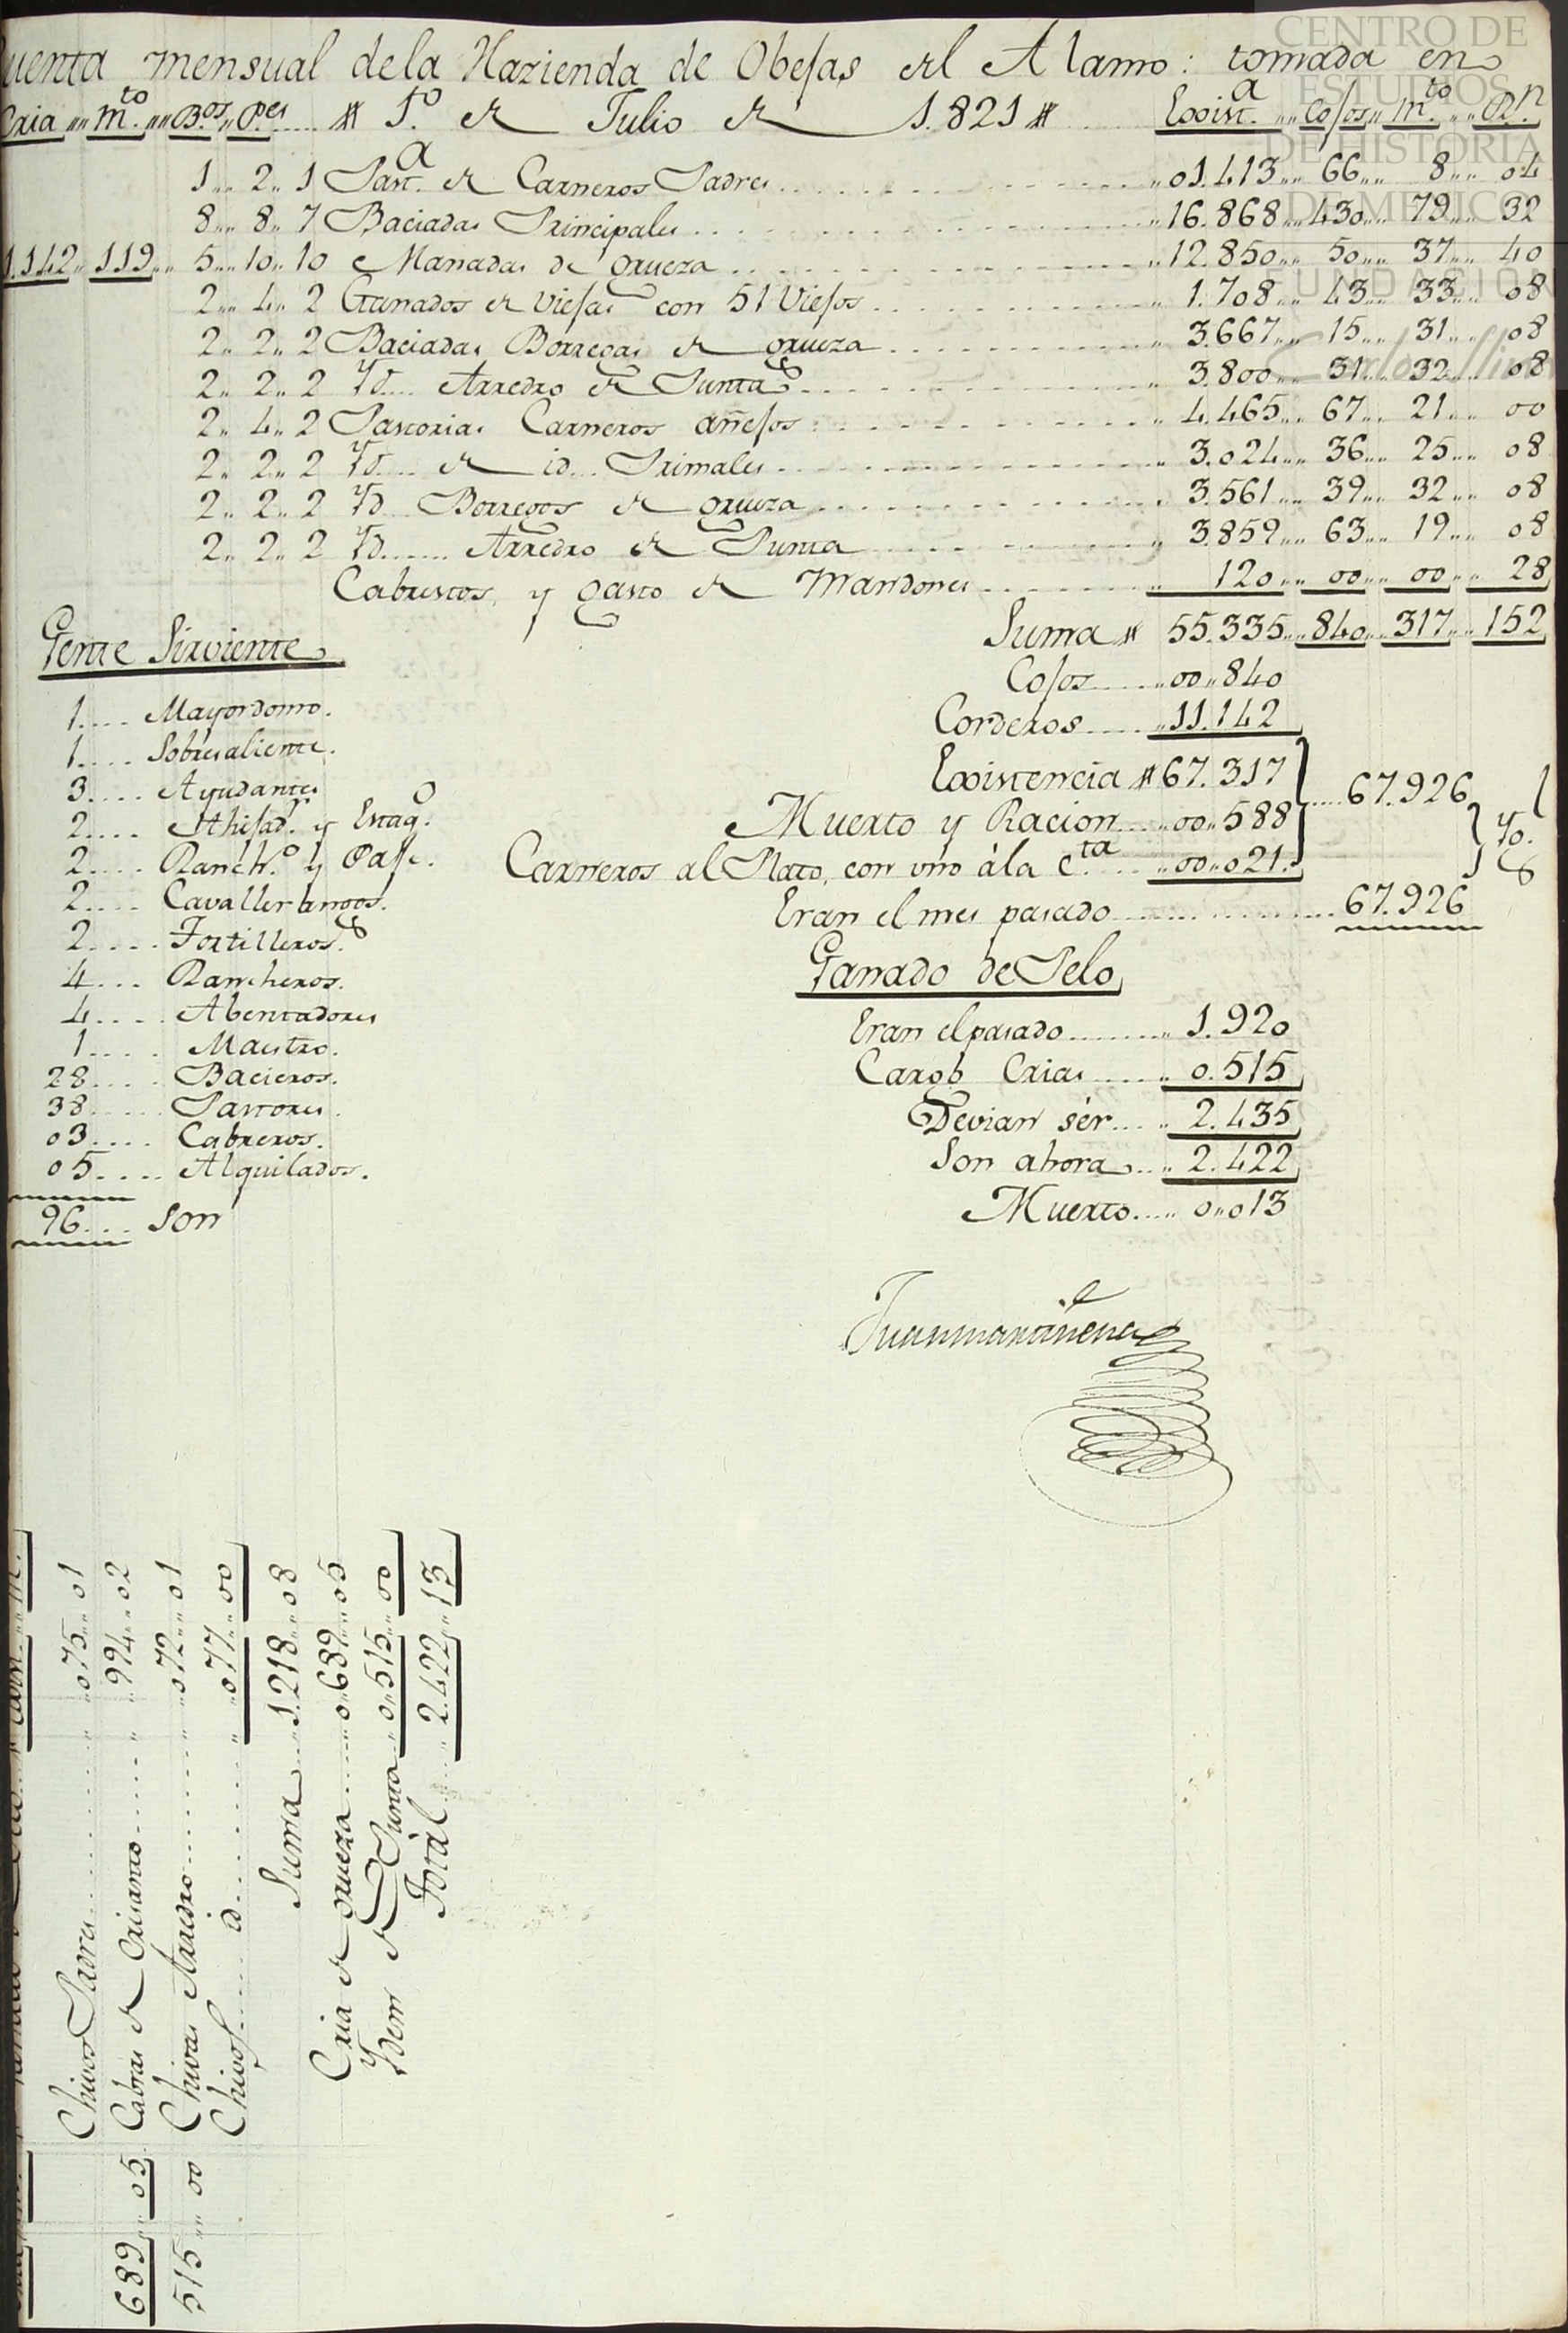 CENTRO DE
ESTUDIOS
DE HISTORIA
DE MEXICO
FUNDACIÓN
Carlos Slim
uenta mensual dela Hazienda de Obejas del Alamo: tomada en
Cria m.to B.os P.es # 1.o de Julio de 1.821 # Exist.a Cojos m.to R.n
1 2 1 Past.a de Carneros Padres 01.413 66 8 04
8 8 7 Baciadas Principales 16.868 430 79 32
1.142 119 5 10 10 Manadas de grueza 12.850 50 37 40
2 4 2 Ganados de Viejas con 51 Viejos 1.708 43 33 08
2 2 2 Baciadas Borregas de grueza 3.667 15 31 08
2 2 2 Yd. Arredro de Punta 3.800 31 32 08
2 4 2 Pastorias Carneros añejos 4.465 67 21 00
2 2 2 Yd. de id. Primales 3.024 36 25 08
2 2 2 Yd. Borregos de grueza 3.561 39 32 08
2 2 2 Yd. Arredro de Punta 3.859 63 19 08
Cabestros, y gasto de Mandones 120 00 00 28
Suma # 55.335 840 317 152
Cojos 00 840
Corderos 11.142
Existencia # 67.317
67.926
Muerto y Racion 00 588
Yg.
Carneros al Plato, con uno à la c.ta 00 021
Eran el mes pasado 67.926
Gente Sirviente
1 Mayordomo.
1 Sobresaliente.
3 Ayudantes
2 Ahijad.r y Estaq.o
2 Ranch.o y Paje.
2 Cavallerangos.
2 Tortilleros.
4 Rancheros.
4 Abentadores
1 Maestro.
28 Bacieros.
38 Pastores.
03 Cabreros.
05 Alquilados.
96 Son
Ganado de Pelo
Eran el pasado 1.920
Cargo Crias 0.515
Devian sér 2.435
Son ahora 2.422
Muerto 0 013
Chivos Padres 075 01
689 05 Cabras de Crianto 994 02
515 00 Chivas Arredro 072 01
Chivos id 077 00
Suma 1.218 08
Cria de grueza 0 689 05
Ydem de Punta 0 515 00
Totál 2.422 13